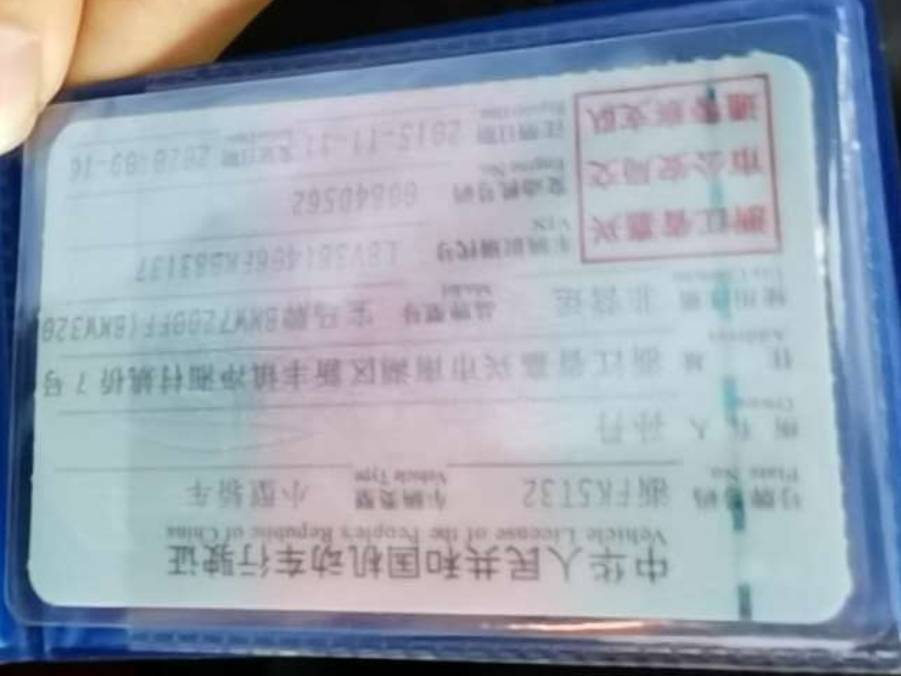 中华人民共和国机动车行驶证
Vehicle License of the People's Republic of China
号牌号码 浙FK5T32 车辆类型 小型轿车
Plate No. Vehicle Type
所有人 孙丹
Owner
住址 浙江省嘉兴市南湖区新丰镇净湘村姚桥7号
Address
使用性质 非营运 品牌型号 宝马牌BMW7200FF(BMW320
Use Character Model
浙江省嘉兴
市公安局交
通警察支队
车辆识别代号
VIN
发动机号码
Engine No.
注册日期 2015-11-11 发证日期 2020-09-16
Register Date